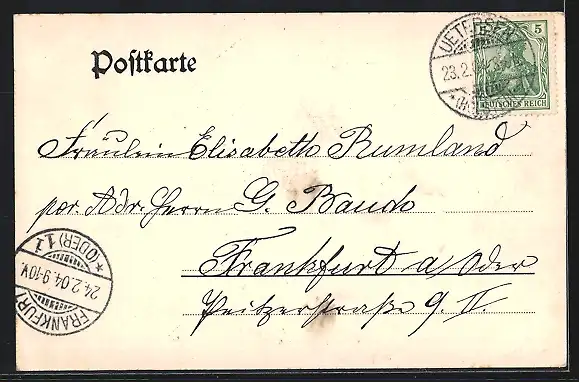 Postkarte
UETERSEN
23.2.
5
DEUTSCHES REICH
Fräulein Elisabeth Rumland
per. Adr. Herrn G. Baudo
Frankfurt a/Oder
straße 9. II.
FRANKFURT
*(ODER) 1.1
24.2.04.9-10V.